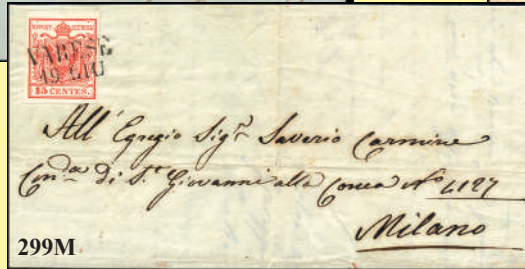 VARESE
19. LUG
15 CENTES.
All' Egregio Sigr. Saverio Carmine
Conda. di St. Giovanni alla Conca No 4127
Milano
299M